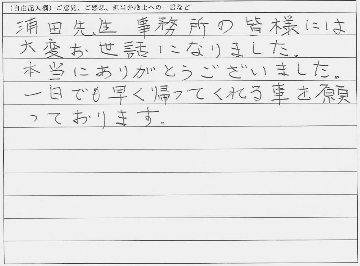 (自由記入欄)ご意見、ご感想、担当弁護士への一言など
浦田先生 事務所の皆様には
大変お世話になりました。
本当にありがとうございました。
一日でも早く帰ってくれる事を願
っております。